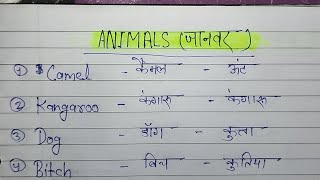 ANIMALS (जानवर)
① Camel - कैमल - ऊंट
② Kangaroo - कंगारू - कंगारू
③ Dog - डॉग - कुत्ता
④ Bitch - बिच - कुतिया